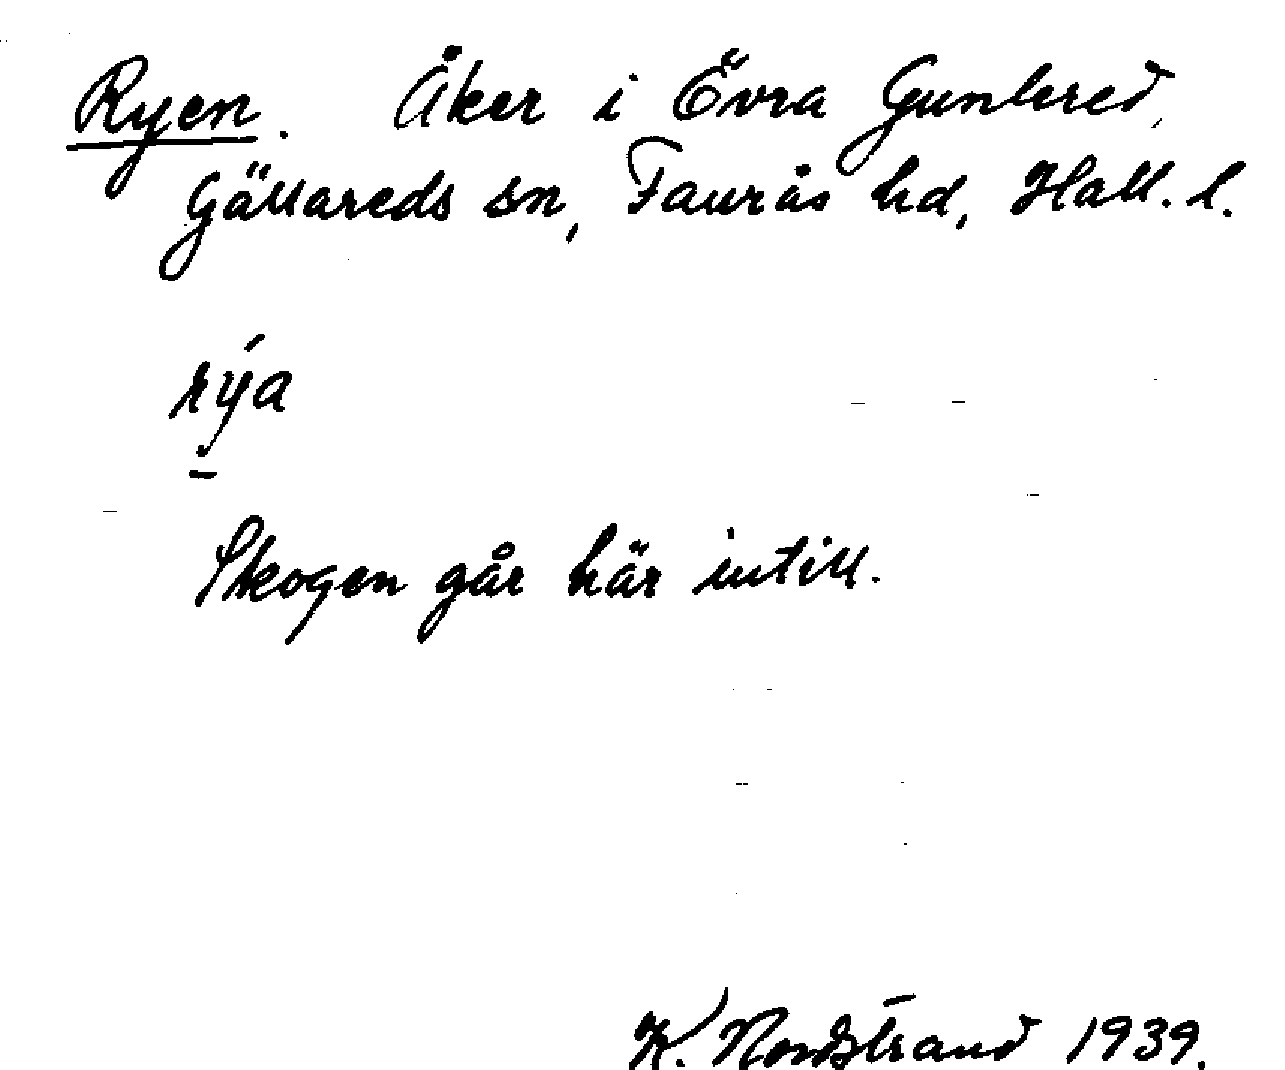 Ryen. Åker i Övra Gunbred,
Gällareds sn, Faurås hd, Hall. l.
rýa
Skogen går här intill.
K. Nordstrand 1939.